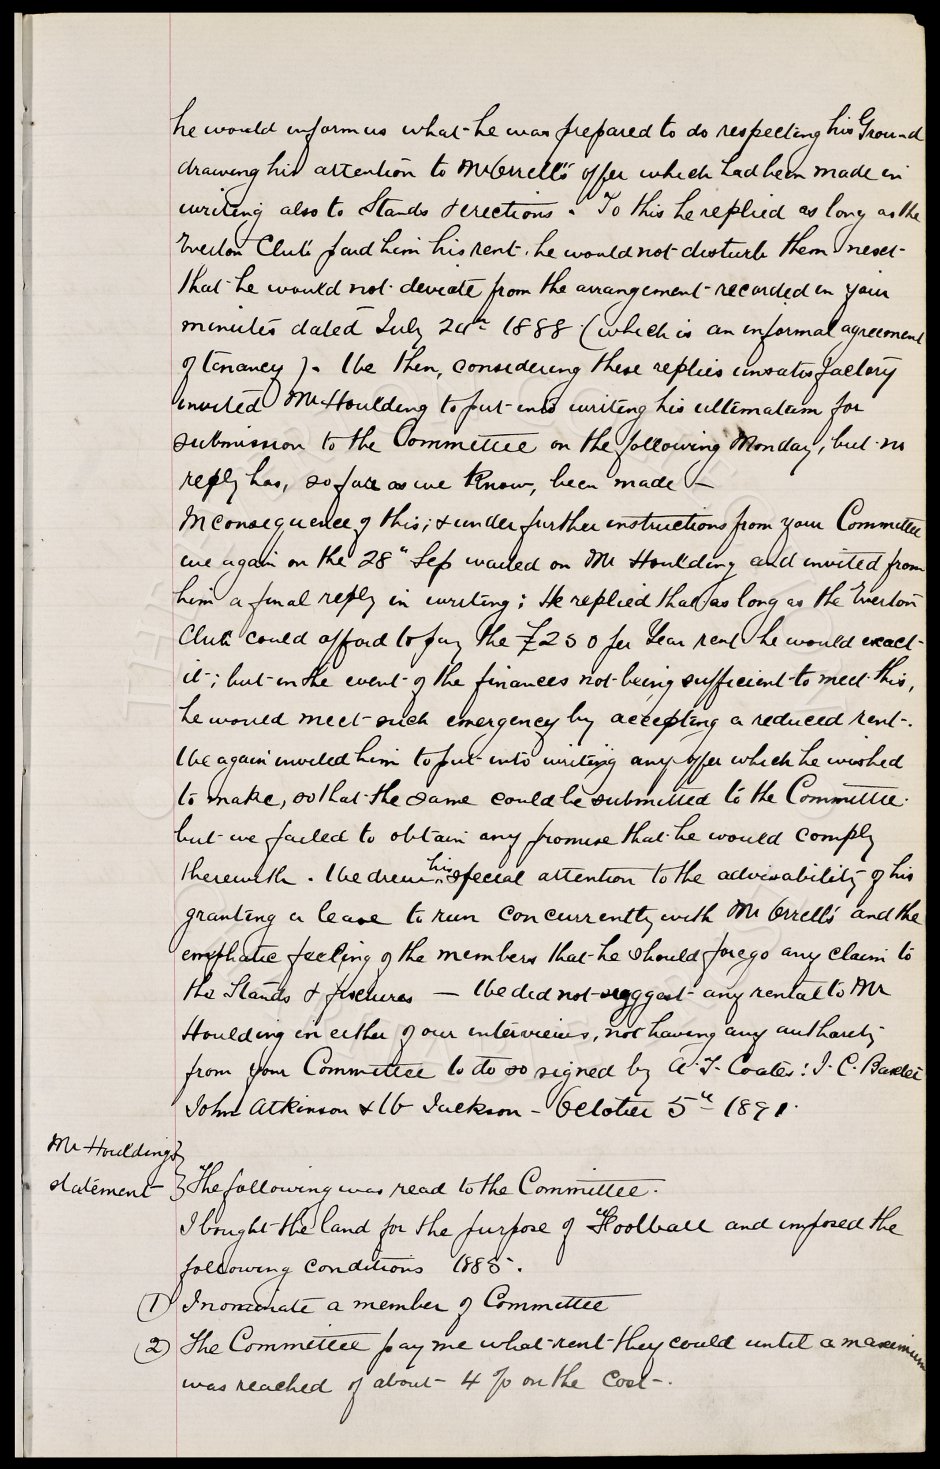 he would inform us what he was prepared to do respecting his Ground
drawing his attention to Mr Orrell's offer which had been made in
writing also to Stands & erections. To this he replied as long as the
Everton Club paid him his rent, he would not disturb them next
that he would not deviate from the arrangement recorded in your
minutes dated July 24th 1888 (which is an informal agreement
of tenancy). We then, considering these replies unsatisfactory
invited Mr Houlding to put into writing his ultimatum for
submission to the Committee on the following Monday, but no
reply has, so far as we know, been made —
In consequence of this; & under further instructions from your Committee
we again on the 28th Sep waited on Mr Houlding and invited from
him a final reply in writing; He replied that as long as the Everton
Club could afford to pay the £250 per Year rent he would exact
it; but in the event of the finances not being sufficient to meet this,
he would meet such emergency by accepting a reduced rent.
We again invited him to put into writing any offer which he wished
to make, so that the same could be submitted to the Committee.
but we failed to obtain any promise that he would comply
therewith. We drew his special attention to the advisability of his
granting a lease to run concurrently with Mr Orrell's and the
emphatic feeling of the members that he should forego any claim to
the Stands & fixtures — We did not suggest any rental to Mr
Houlding in either of our interviews, not having any authority
from your Committee to do so signed by A. T. Coates: J. C. Baxter
John Atkinson & W Jackson - October 5th 1891.
Mr Houldings
statement } The following was read to the Committee.
I bought the land for the purpose of Football and imposed the
following conditions 1885.
(1) I nominate a member of Committee
(2) The Committee pay me what rent they could until a maximum
was reached of about 4 % on the cost.